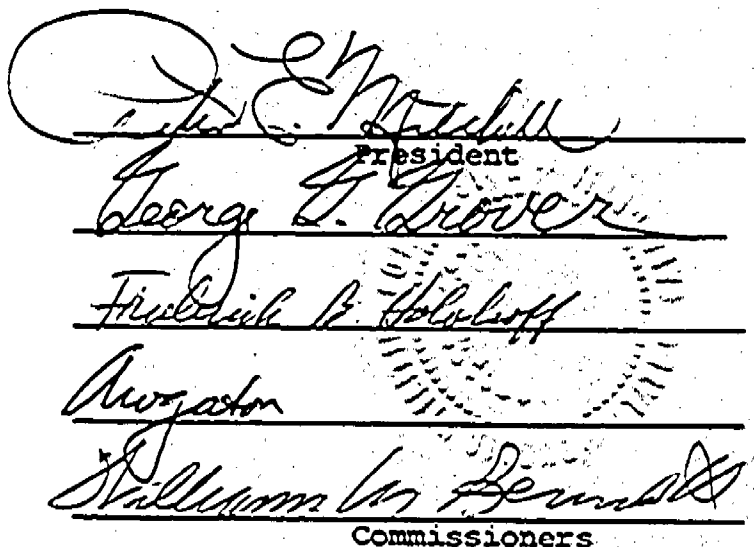 Peter E. Mitchell
President
George G. Grover
Frederick B. Holoboff
AWGatov
William M. Bennett
Commissioners